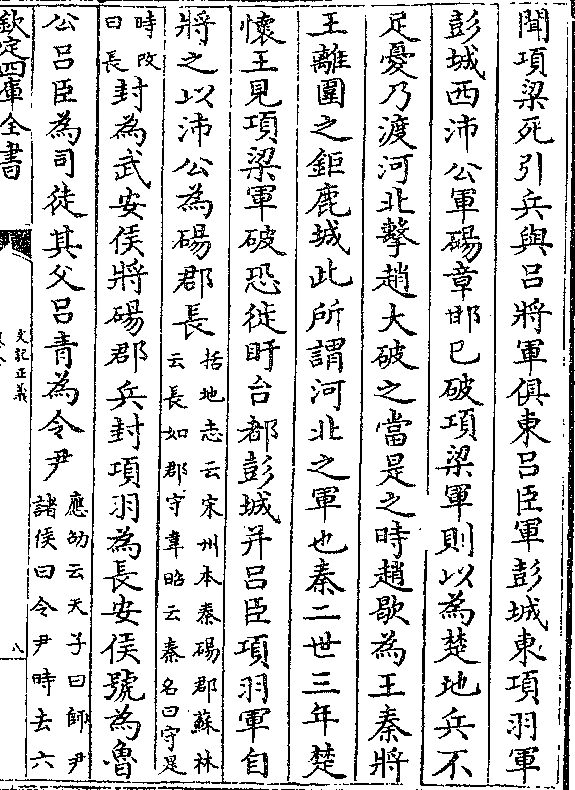 聞項梁死引兵與呂將軍俱東呂臣軍彭城東項羽軍
彭城西沛公軍碭章邯已破項梁軍則以為楚地兵不
足憂乃渡河北擊趙大破之當是之時趙歇為王秦將
王離圍之鉅鹿城此所謂河北之軍也秦二世三年楚
懷王見項梁軍破恐徙盱台都彭城并呂臣項羽軍自
將之以沛公為碭郡長
括地志云宋州本秦碭郡蘇林
云長如郡守韋昭云秦名曰守是
時改
曰長
封為武安侯將碭郡兵封項羽為長安侯號為魯
公呂臣為司徒其父呂青為令尹
應劭云天子曰師尹
諸侯曰令尹時去六
欽定四庫全書
史記正義
八